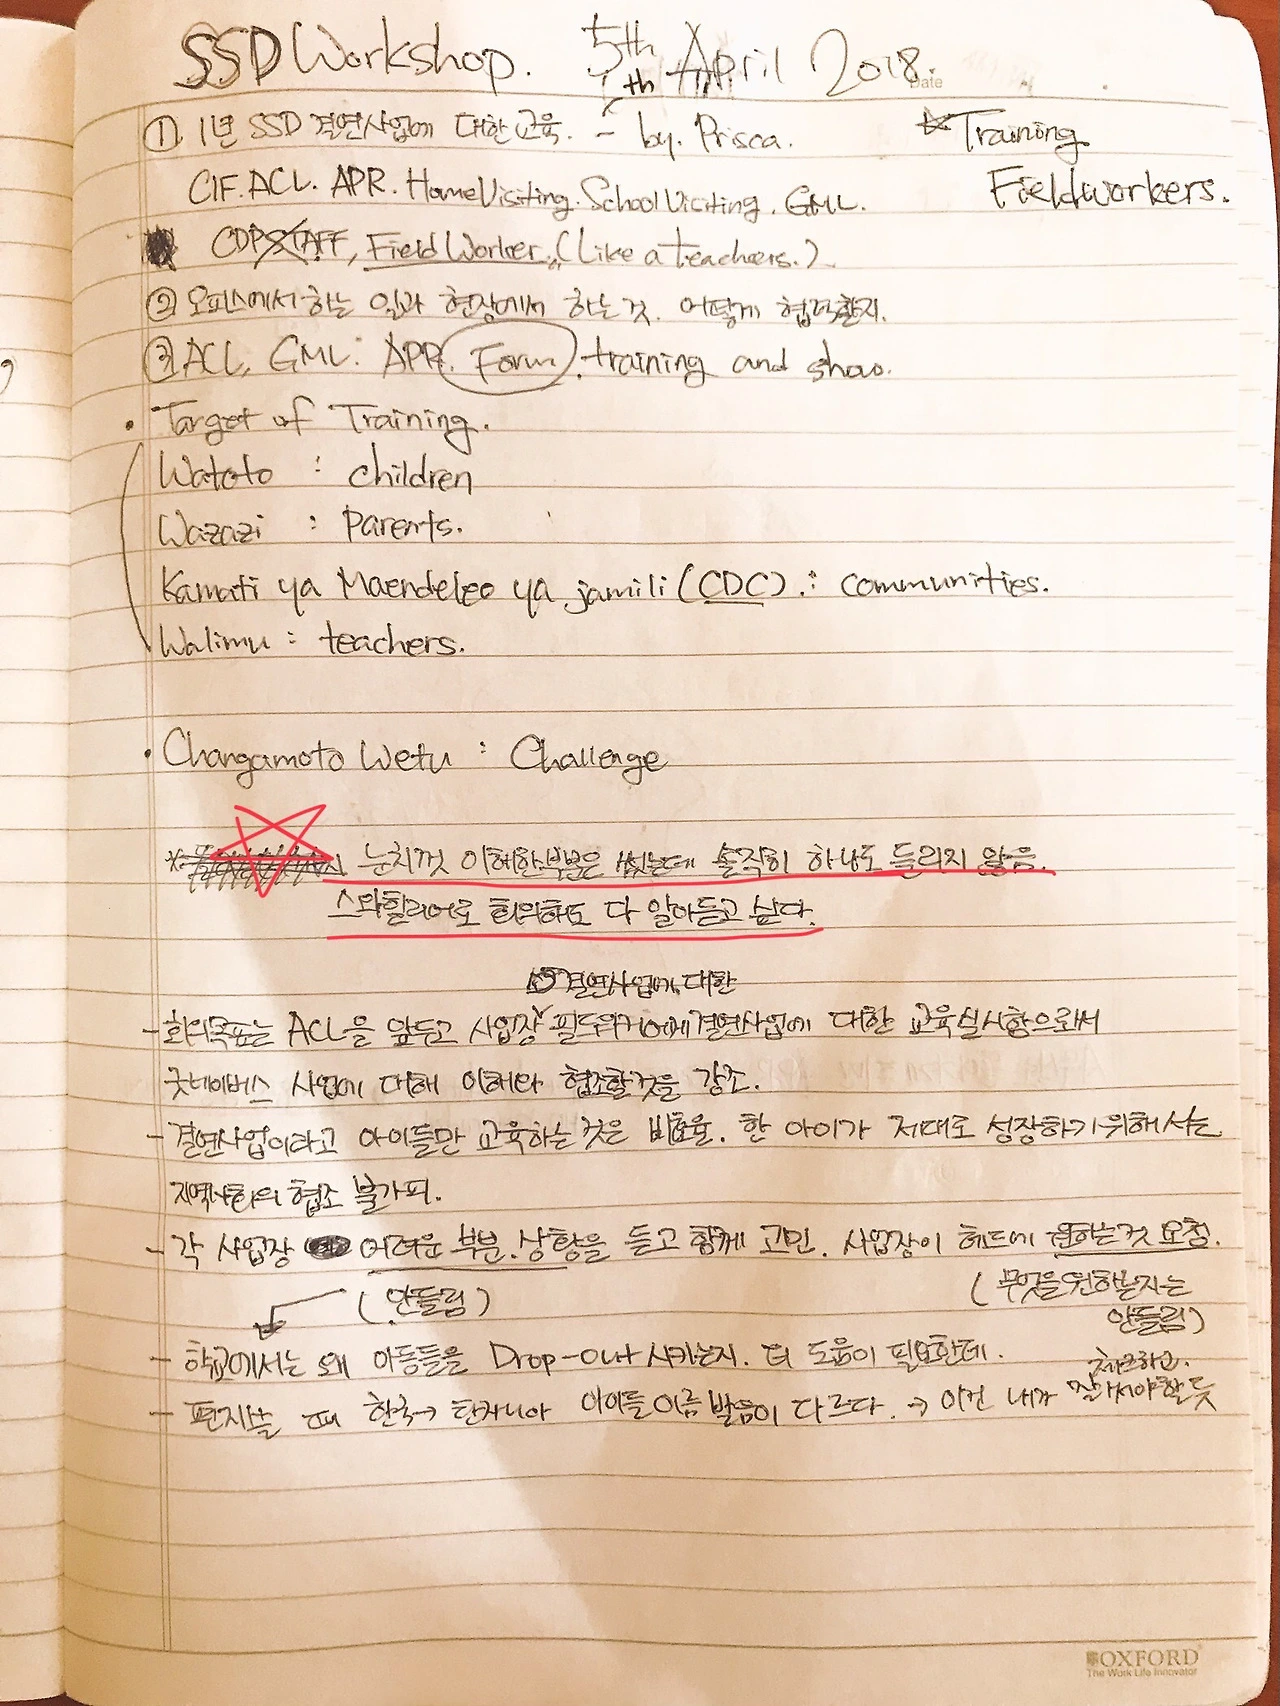 SSD Workshop. 5th April 2018.
Date
th
① 1년 SSD 결연사업에 대한 교육. - by. Prisca.
☆ Training
Fieldworkers.
CIF. ACL. APR. Home Visiting. School Visiting. GML.
CDP STAFF, Field Worker, (Like a teachers.)
② 오피스에서 하는 일과 현장에서 하는 것. 어떻게 협력할지.
③ ACL, GML. APR. Form. training and show.
• Target of Training.
Watoto : children
Wazazi : Parents.
Kamati ya Maendeleo ya jamili (CDC). : communities.
Walimu : teachers.
• Changamoto Wetu : Challenge
* 눈치껏 이해한 부분은 썼는데 솔직히 하나도 들리지 않음.
스와힐리어로 회의해도 다 알아듣고 싶다.
결연사업에 대한
- 회의목표는 ACL을 앞두고 사업장 필드워커에게 결연사업에 대한 교육실시함으로서
굿네이버스 사업에 대해 이해와 협조할 것을 강조.
- 결연사업이라고 아이들만 교육하는 것은 비효율. 한 아이가 제대로 성장하기 위해서는
지역사회의 협조 불가피.
- 각 사업장 어려운 부분. 상황을 듣고 함께 고민. 사업장이 헤드에 원하는 것 요청.
(안들림)
(무엇을 원하는지는
안들림)
- 학교에서는 왜 아동들을 Drop-out 시키는지. 더 도움이 필요한데.
- 편지쓸 때 한국→탄자니아 아이들 이름 발음이 다르다. → 이건 내가
체크하고.
잘 써야할 듯
OXFORD
The Work Life Innovator